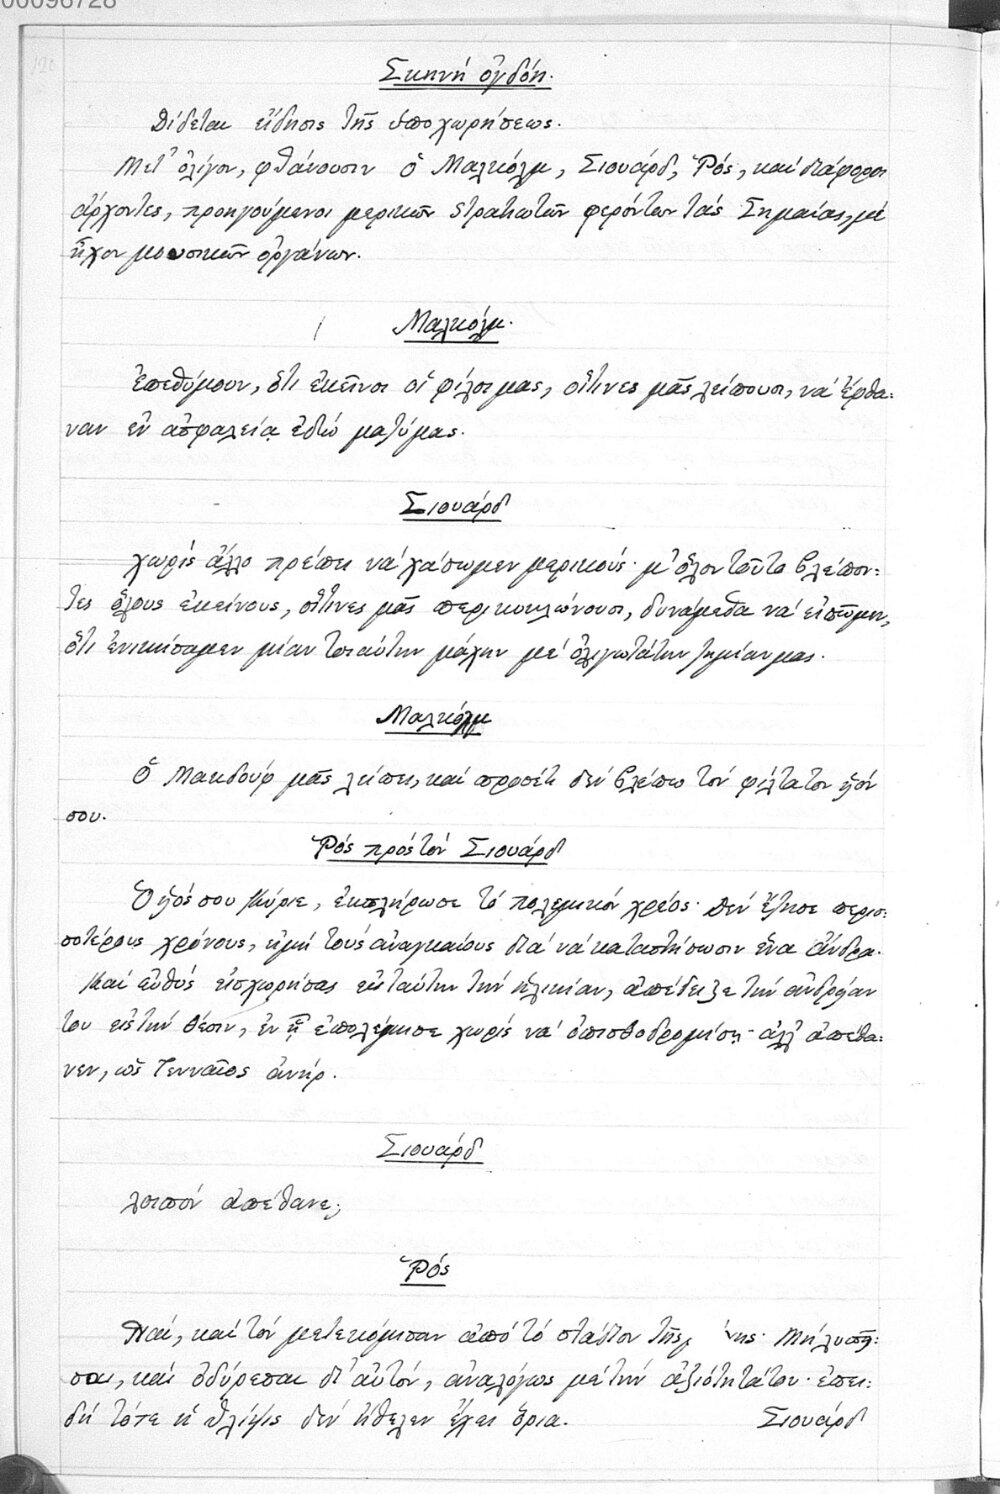 00096728
120
Σκηνή ὀγδόη.
Δίδεται εἴδησις τῆς ὑποχωρήσεως.
Μετ' ὀλίγον, φθάνουσιν ὁ Μαλκόλμ, Σιουάρδ, Ῥός, καὶ διάφοροι
ἄρχοντες, προηγούμενοι μερικῶν στρατιωτῶν φερόντων τὰς Σημαίας, μὲ
ἦχον μουσικῶν ὀργάνων.
Μαλκόλμ.
Ἐπεθύμουν, ὅτι ἐκεῖνοι οἱ φίλοι μας, οἵτινες μᾶς λείπουσι, νὰ ἔρθα:
ναν ἐν ἀσφαλείᾳ ἐδῶ μαζύ μας.
Σιουάρδ
Χωρὶς ἄλλο πρέπει νὰ χάσωμεν μερικούς· μ' ὅλον τοῦτο βλέπον:
τες ὅλους ἐκείνους, οἵτινες μᾶς περικυκλώνουσι, δυνάμεθα νὰ εἰπῶμεν,
ὅτι ἐνικήσαμεν μίαν τοιαύτην μάχην μὲ ὀλιγωτάτην ζημίαν μας.
Μαλκόλμ
Ὁ Μακδούφ μᾶς λείπει, καὶ προσέτι δὲν βλέπω τὸν φίλτατον υἱόν
σου.
Ῥός πρός τὸν Σιουάρδ
Ὁ υἱός σου Κύριε, ἐκπλήρωσε τὸ πολεμικὸν χρέος· Δὲν ἔζησε περισ:
σοτέρους χρόνους, εἰμὴ τοὺς ἀναγκαίους διὰ νὰ καταστήσωσιν ἕνα ἄνδρα.
Καὶ εὐθὺς εἰσχωρήσας εἰς ταύτην τὴν ἡλικίαν, ἀπέδειξε τὴν ἀνδρείαν
του εἰς τὴν θέσιν, ἐν ᾗ ἐπολέμησε χωρὶς νὰ ὀπισθοδρομήσῃ· ἀλλ' ἀπέθα:
νεν, ὡς γενναῖος ἀνήρ.
Σιουάρδ
Λοιπὸν ἀπέθανε;
Ῥός
Ναί, καὶ τὸν μετεκόμισαν ἀπὸ τὸ στάδιον τῆς μάχης. Μὴ λυπῆ:
σαι, καὶ ὀδύρεσαι δι' αὐτόν, ἀναλόγως μὲ τὴν ἀξιότητά του· ἐπει:
δὴ τότε ἡ θλίψις δὲν ἤθελεν ἔχει ὅρια.
Σιουάρδ